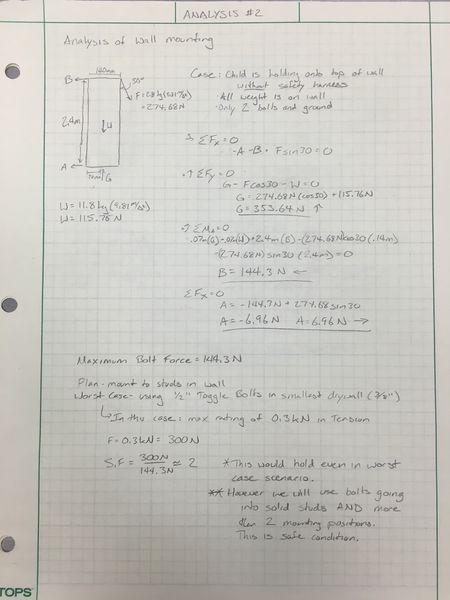 ANALYSIS #2
Analysis of Wall mounting
140mm
30°
B
F=28kg(9.81m/s²)
=274.68N
2.4m
W
A
70mm
G
W=11.8kg(9.81m/s²)
W=115.76N
Case: Child is holding onto top of wall
without safety harness
- All weight is on wall
- Only 2 bolts and ground
ΣFx=0
-A-B+Fsin30=0
+↑ΣFy=0
G-Fcos30-W=0
G=274.68N(cos30)+115.76N
G=353.64N ↑
ΣMA=0
.07m(G)-.07m(W)+2.4m(B)-(274.68N)cos30(.14m)
-(274.68N)sin30(2.4m)=0
B=144.3N ←
ΣFx=0
A=-144.3N+274.68sin30
A=-6.96N A=6.96N →
Maximum Bolt Force=144.3N
Plan-mount to studs in wall
Worst Case-using 1/2" Toggle Bolts in smallest drywall (3/8")
↳In this case: max rating of 0.3kN in Tension
F=0.3kN=300N
S.F=300N/144.3N≈2
*This would hold even in worst
case scenario.
** However we will use bolts going
into solid studs AND more
than 2 mounting positions.
This is safe condition.
TOPS